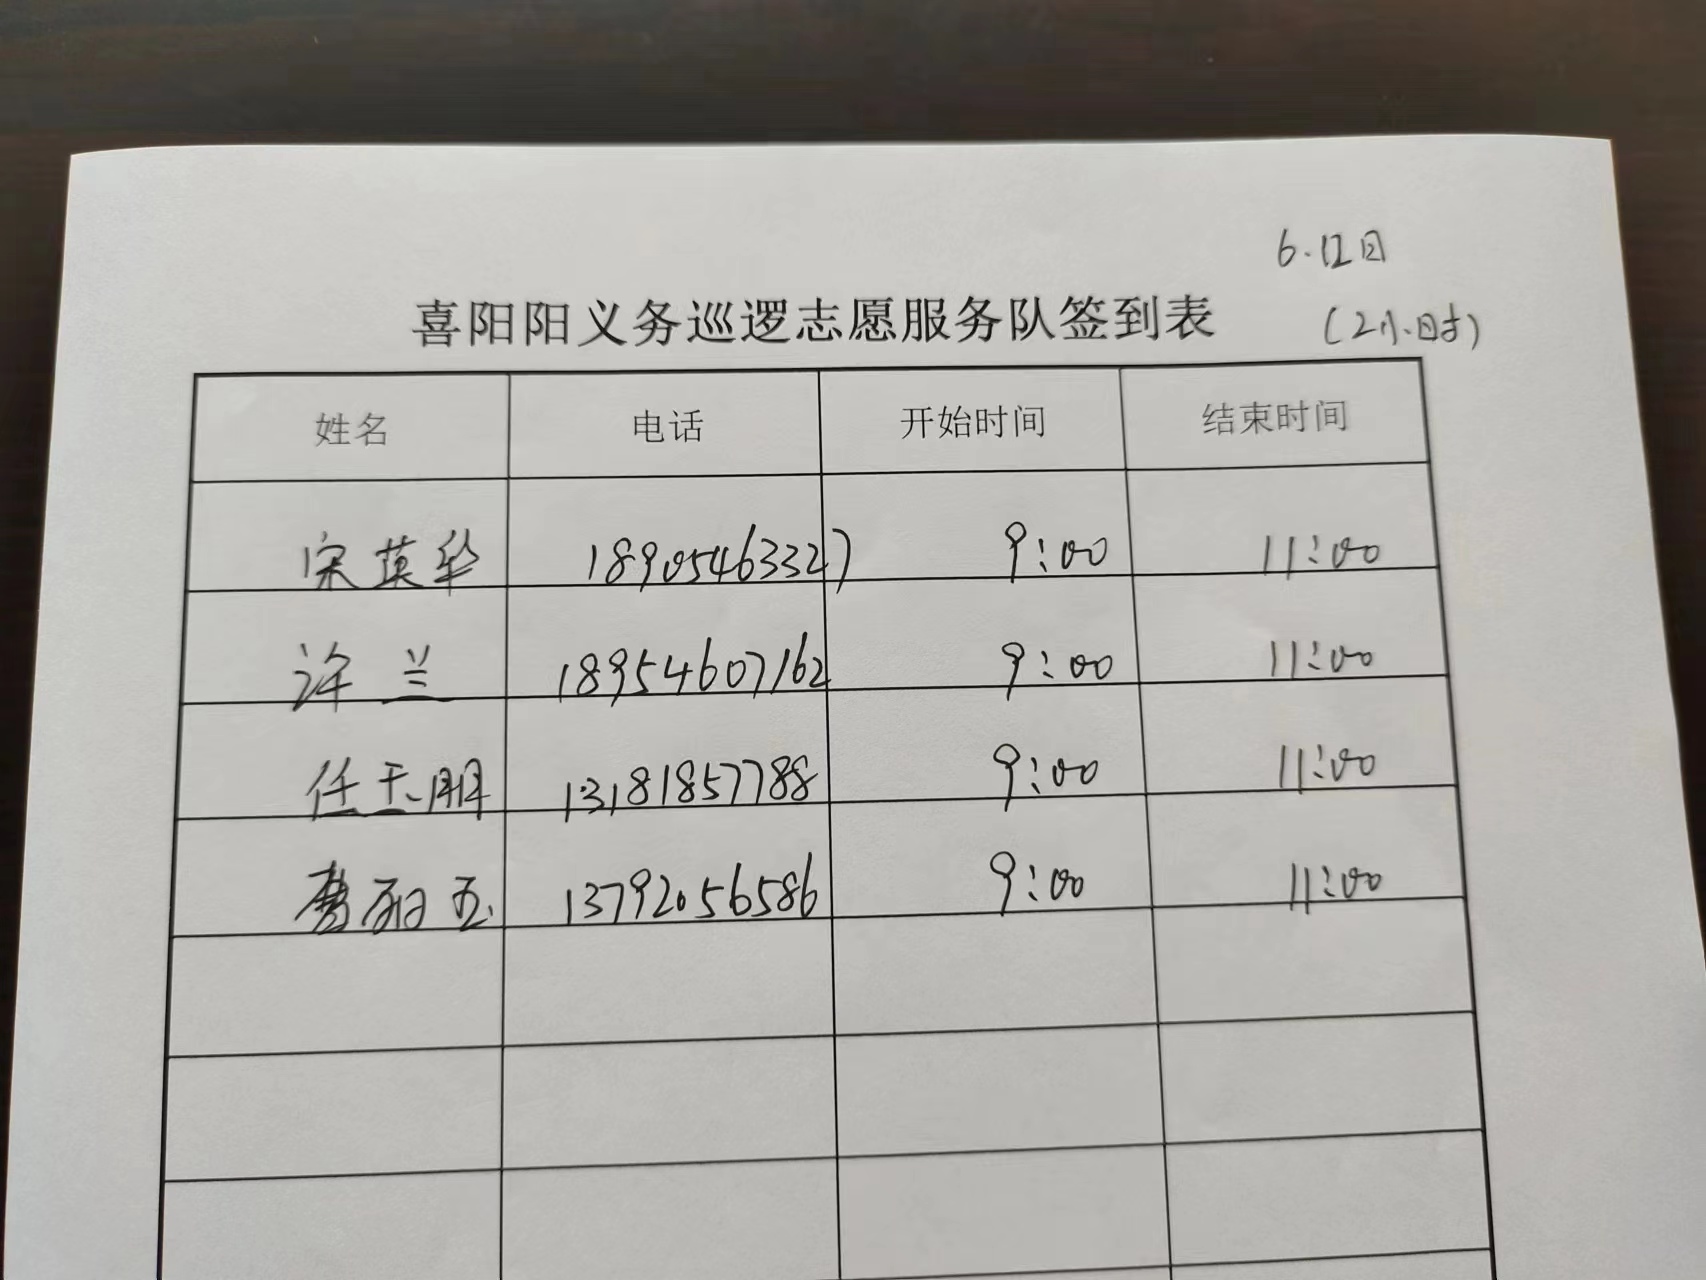 6.12日
喜阳阳义务巡逻志愿服务队签到表 (2小时)
姓名 电话 开始时间 结束时间
宋英华 18905463327 9:00 11:00
许兰 18954607162 9:00 11:00
任玉朋 13181857788 9:00 11:00
13792056586 9:00 11:00